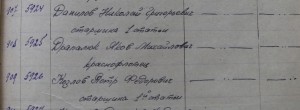 5924 Данилов Николай Григорьевич
старшина 2 статьи
5925 Яков Михайлович
краснофлотец
5926 Козлов Петр Федорович
старшина 1й статьи